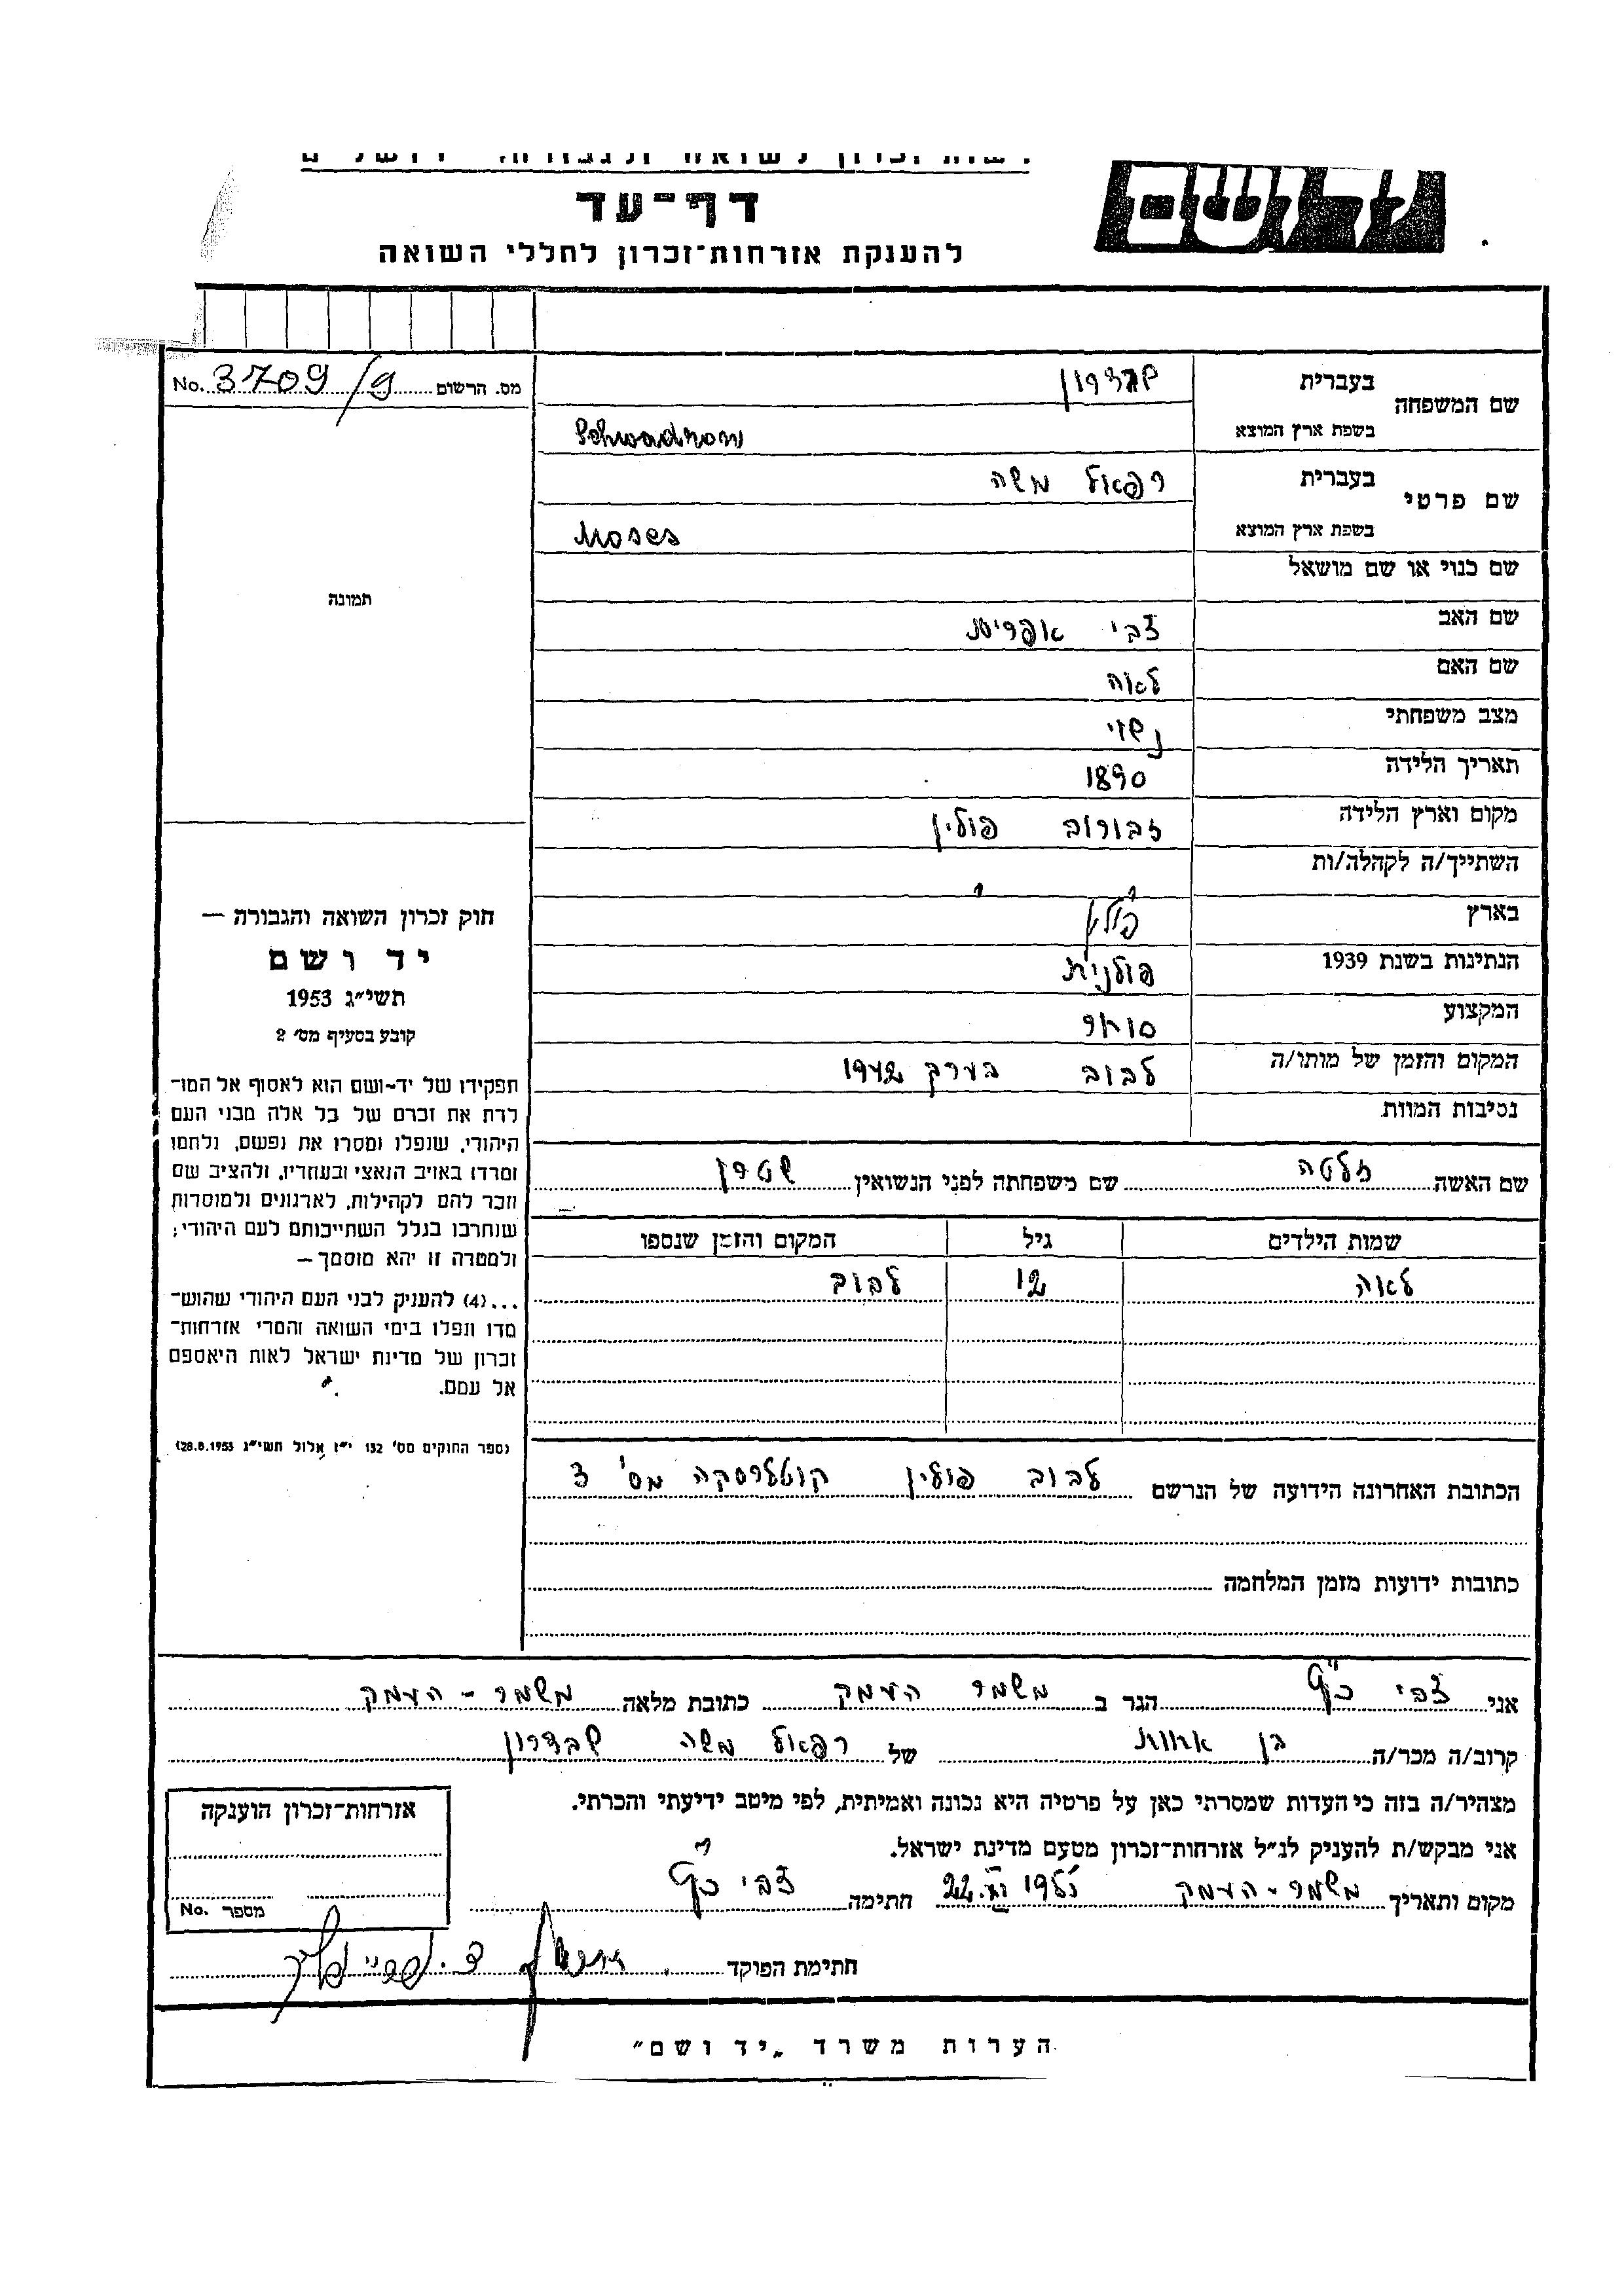 דף-עד
להענקת אזרחות-זכרון לחללי השואה
מס. הרשום 3709/9 No.
שם המשפחה
בעברית שבדרון
בשפת ארץ המוצא Schwadron
שם פרטי
בעברית רפאל משה
בשפת ארץ המוצא Moses
שם כנוי או שם מושאל
שם האב צבי אפרים
שם האם לאה
מצב משפחתי נשוי
תאריך הלידה 1890
מקום וארץ הלידה זבורוב פולין
השתייך/ה לקהלה/ות
בארץ פולין
הנתינות בשנת 1939 פולנית
המקצוע סוחר
המקום והזמן של מותו/ה לבוב בערך 1942
נסיבות המוות
שם האשה זלטה שם משפחתה לפני הנשואין שטרן
שמות הילדים גיל המקום והזמן שנספו
לאה 12 לבוב
הכתובת האחרונה הידועה של הנרשם לבוב פולין קוטלרסקה מס' 3
כתובות ידועות מזמן המלחמה
תמונה
חוק זכרון השואה והגבורה —
יד ושם
תשי״ג 1953
קובע בסעיף מס׳ 2
תפקידו של יד-ושם הוא לאסוף אל המו-
לדת את זכרם של כל אלה מבני העם
היהודי, שנפלו ומסרו את נפשם, נלחמו
ומרדו באויב הנאצי ובעוזריו, ולהציב שם
וזכר להם לקהילות, לארגונים ולמוסדות
שנחרבו בגלל השתייכותם לעם היהודי;
ולמטרה זו יהא מוסמך —
...(4) להעניק לבני העם היהודי שהוש-
מדו ונפלו בימי השואה והמרי אזרחות-
זכרון של מדינת ישראל לאות היאספם
אל עמם.
(ספר החוקים מס׳ 132 י״ז אלול תשי״ג 28.8.1953)
אני צבי הגר ב משמר העמק כתובת מלאה משמר - העמק
קרוב/ה מכר/ה בן אחות של רפאל משה שבדרון
מצהיר/ה בזה כי העדות שמסרתי כאן על פרטיה היא נכונה ואמיתית, לפי מיטב ידיעתי והכרתי.
אני מבקש/ת להעניק לנ״ל אזרחות-זכרון מטעם מדינת ישראל.
מקום ותאריך משמר - העמק 22. 1955 חתימה צבי
חתימת הפוקד
אזרחות-זכרון הוענקה
מספר No.
הערות משרד „יד ושם״